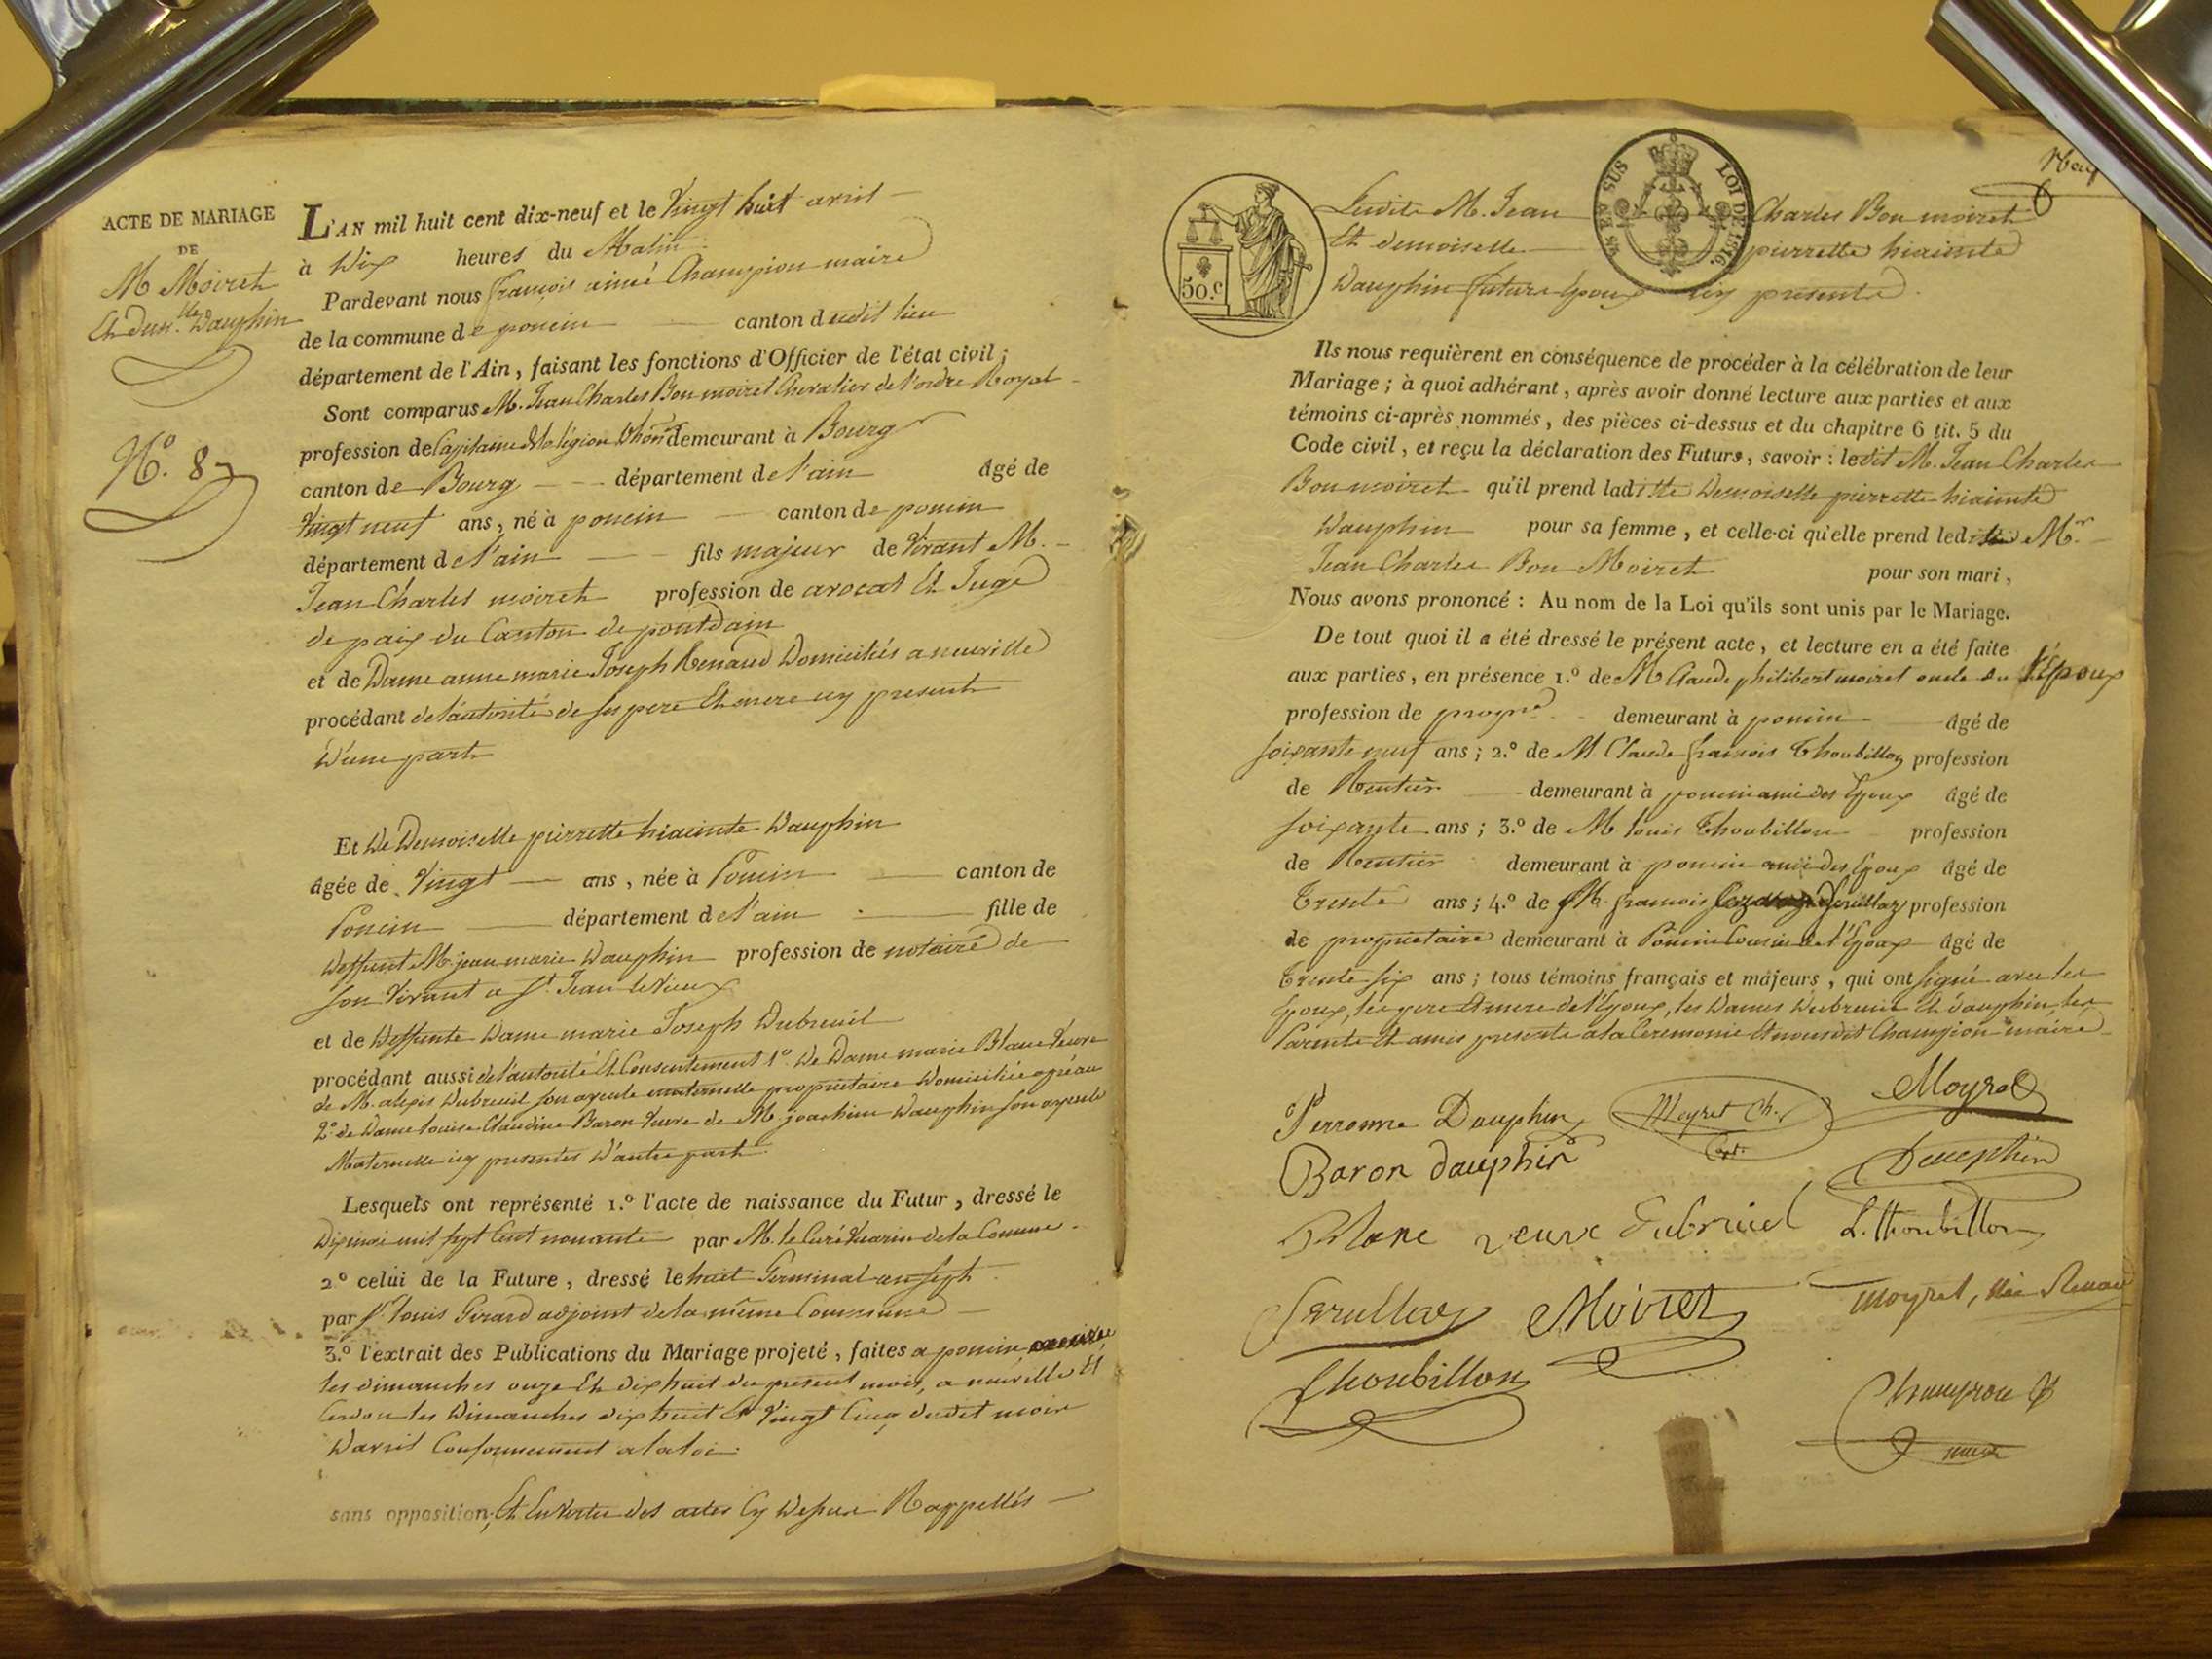 ACTE DE MARIAGE
DE
M Moiret
Et Dem.lle Dauphin
N.º 8
L'AN mil huit cent dix-neuf et le Vingt huit avril
à Dix heures du Matin
Pardevant nous françois aimé Champion maire
de la commune de poncin canton dudit lieu
département de l'Ain, faisant les fonctions d'Officier de l'état civil;
Sont comparus M. Jean Charles Bon moiret Chevalier de l'ordre Royal
profession de Capitaine de la légion d'hon.r demeurant à Bourg
canton de Bourg département de l'ain âgé de
Vingt neuf ans, né à poncin canton de poncin
département de l'ain fils majeur de Vivant M.
Jean Charles moiret profession de avocat Et Juge
de paix du Canton de pontdain
et de Dame anne marie Joseph Renaud Domiciliés a neuville
procédant de l'autorité de ses pere Et mere icy present
D'une part
Et De Demoiselle pierrette hiacinte Dauphin
âgée de Vingt ans, née à Poncin canton de
Poncin département de l'ain fille de
Deffunt M. jean marie Dauphin profession de notaire de
son Vivant a St. Jean le Vieux
et de Deffunte Dame marie Joseph Dubreuil
procédant aussi de l'autorité Et Consentement 1º De Dame marie Blanc Veuve
de M. alexis Dubreuil son ayeule maternelle propriétaire Domiciliée a
2º de Dame louise Claudine Baron Veuve de M. joachim Dauphin son ayeule
Maternelle icy presentes D'autre part.
Lesquels ont représenté 1.º l'acte de naissance du Futur, dressé le
Dix mai mil sept Cent nonante par M. le Curé de la Comune
2º celui de la Future, dressé le huit Germinal an sept
par Sr. louis Girard adjoint de la même Commune
3.º l'extrait des Publications du Mariage projeté, faites a poncin
les dimanches onze Et dix huit du present mois, a neuville Et
Cerdon les Dimanches dix huit Et Vingt Cinq dudit mois
D'avril Conformement a la loi
sans opposition, Et En Vertu des actes Cy Dessus Rappellés
50.c
EN SUS LOI DE 1816.
Neuf
Ledit M. Jean Charles Bon moiret
Et demoiselle pierrette hiacinte
Dauphin futurs Epoux icy presents.
Ils nous requièrent en conséquence de procéder à la célébration de leur
Mariage; à quoi adhérant, après avoir donné lecture aux parties et aux
témoins ci-après nommés, des pièces ci-dessus et du chapitre 6 tit. 5 du
Code civil, et reçu la déclaration des Futurs, savoir: ledit M. Jean Charles
Bon moiret qu'il prend laditte Demoiselle pierrette hiacinte
Dauphin pour sa femme, et celle-ci qu'elle prend ledit Mr.
Jean Charles Bon Moiret pour son mari,
Nous avons prononcé: Au nom de la Loi qu'ils sont unis par le Mariage.
De tout quoi il a été dressé le présent acte, et lecture en a été faite
aux parties, en présence 1.º de M Claude philibert moiret oncle de l'Epoux
profession de propre demeurant à poncin âgé de
soixante neuf ans; 2.º de M Claude françois Thoubillon profession
de Rentier demeurant à poncin ami des Epoux âgé de
soixante ans; 3.º de M louis Thoubillon profession
de Rentier demeurant à poncin ami des Epoux âgé de
Trente ans; 4.º de M. françois Serullaz profession
de proprietaire demeurant à Poncin Cousin de l'Epoux âgé de
Trente six ans; tous témoins français et májeurs, qui ont signé avec les
Epoux, les pere Et mere de l'Epoux, les Dames Dubreuil Et dauphin, les
Parents Et amis presents a la Ceremonie Et nousdit Champion maire
Perronne Dauphin
Meyret Ch.
Moyret
Baron dauphin
Dauphin
Blanc veuve dubruiel
L. Thoubillon
Serullaz
Moiret
moyret, née Renaud
Thoubillon
Champion
maire